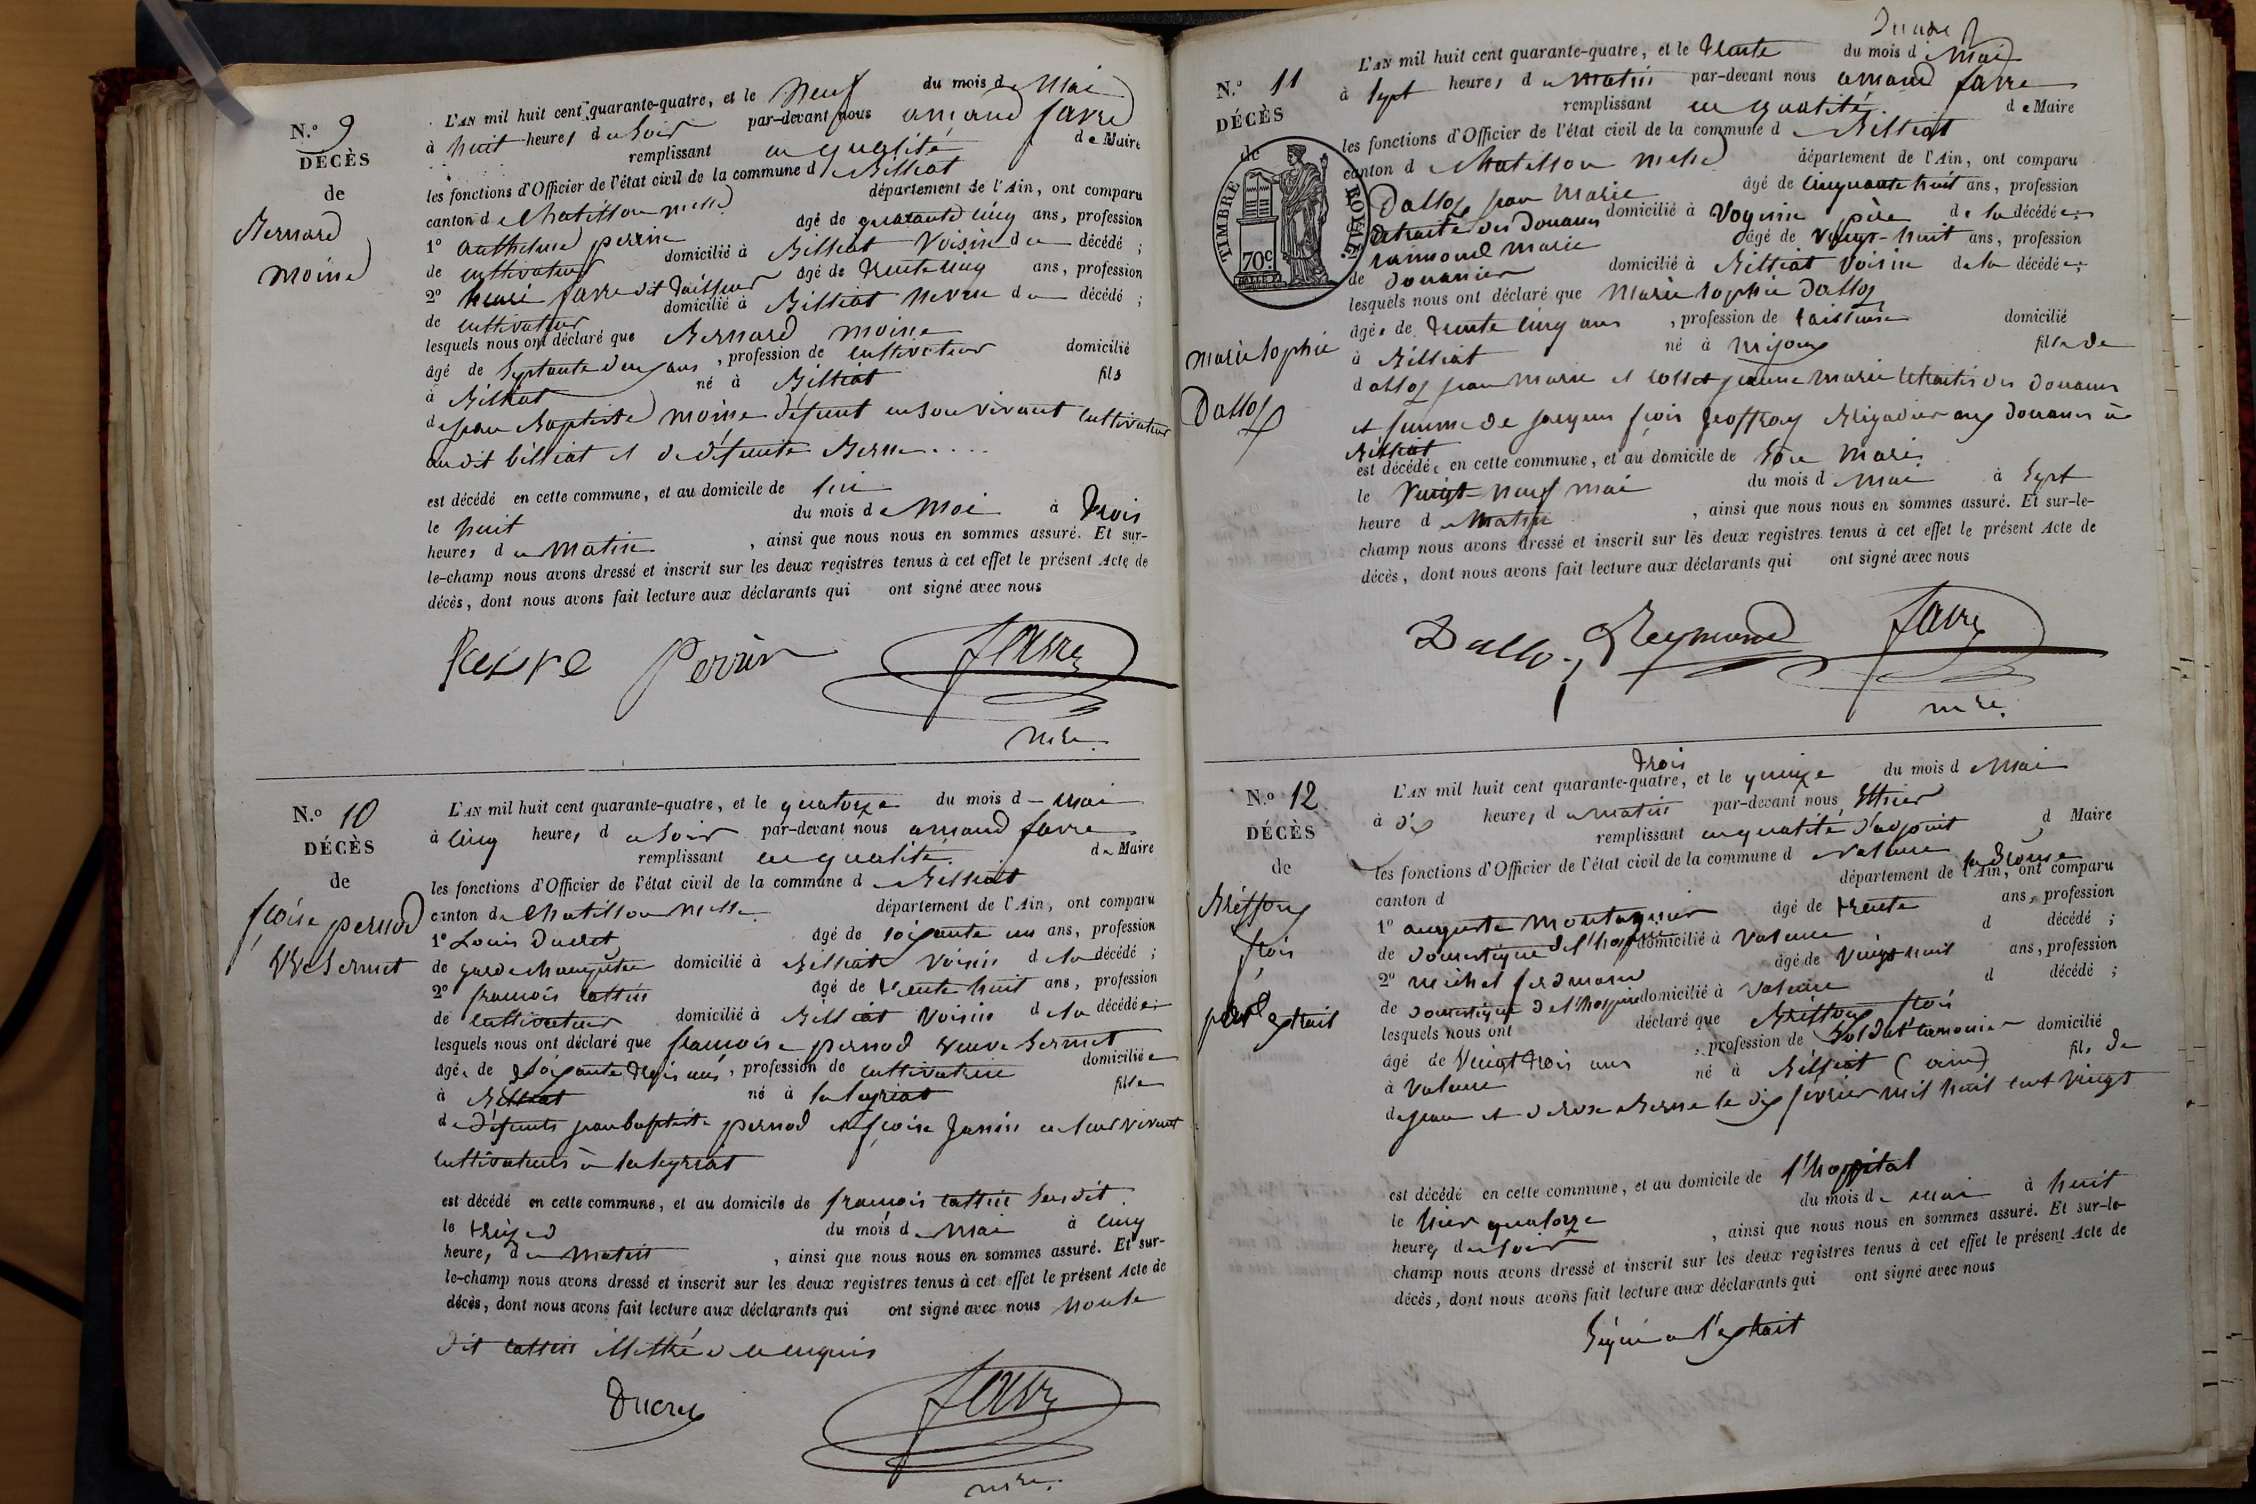 N.º 9
DÉCÈS
de
Bernard
Moine
L'AN mil huit cent quarante-quatre, et le neuf du mois de Mai
à huit heures du soir par-devant nous amand favre
remplissant en qualité de Maire
les fonctions d'Officier de l'état civil de la commune d Billiat
canton de Chatillon département de l'Ain, ont comparu
1º anthelme perrin agé de quarante cinq ans, profession
de cultivateur domicilié à Billiat voisin du décédé ;
2º favre dit agé de trente cinq ans, profession
de cultivateur domicilié à Billiat neveu du décédé ;
lesquels nous ont déclaré que Bernard moine
âgé de septante deux ans, profession de cultivateur domicilié
à Billiat né à Billiat fils
de jean Baptiste moine défunt en son vivant cultivateur
au dit billiat et de défunte Berne....
est décédé en cette commune, et au domicile de lui
le huit du mois de Mai à trois
heures du Matin, ainsi que nous nous en sommes assuré. Et sur-
le-champ nous avons dressé et inscrit sur les deux registres tenus à cet effet le présent Acte de
décès, dont nous avons fait lecture aux déclarants qui ont signé avec nous
favre Perrin favre
mre.
N.º 10
DÉCÈS
de
fçoise pernod
Vve Sermet
L'AN mil huit cent quarante-quatre, et le quatorze du mois d mai
à cinq heures du soir par-devant nous amand favre
remplissant en qualité de Maire
les fonctions d'Officier de l'état civil de la commune d Billiat
canton de Chatillon département de l'Ain, ont comparu
1º Louis Ducret agé de soixante un ans, profession
de garde champêtre domicilié à Billiat voisin de la décédé ;
2º françois cattin agé de trente huit ans, profession
de cultivateur domicilié à Billiat voisin de la décédée ;
lesquels nous ont déclaré que françoise pernod veuve Sermet
agée de soixante trois ans, profession de cultivatrice domiciliée
à Billiat né à laleyriat fille
de défunts jean baptiste pernod et fçoise Janin en leur vivant
cultivateurs à laleyriat
est décédé en cette commune, et au domicile de françois cattin susdit
le treize du mois de Mai à cinq
heures du matin, ainsi que nous nous en sommes assuré. Et sur-
le-champ nous avons dressé et inscrit sur les deux registres tenus à cet effet le présent Acte de
décès, dont nous avons fait lecture aux déclarants qui ont signé avec nous non le
dit cattin illettré de ce enquis
Ducret favre
mre.
N.º 11
DÉCÈS
de
TIMBRE ROYAL
70c
marie Sophie
Dalloz
L'AN mil huit cent quarante-quatre, et le trente du mois d Mai
à sept heures du matin par-devant nous amand favre
remplissant en qualité de Maire
les fonctions d'Officier de l'état civil de la commune d Billiat
canton de Chatillon département de l'Ain, ont comparu
Dalloz jean Marie âgé de cinquante huit ans, profession
retraité des douanes domicilié à père de la décédée ;
raimond marie âgé de vingt-huit ans, profession
de douanier domicilié à Billiat voisin de la décédée ;
lesquels nous ont déclaré que Marie Sophie Dalloz
âgée de trente cinq ans, profession de tailleuse domicilié
à Billiat né à mijoux fille de
dalloz jean Marie et jeanne Marie retraités des douanes
et femme de jacques fçois geoffray Brigadier aux douanes à
Billiat
est décédée en cette commune, et au domicile de son Mari
le vingt-neuf mai du mois d Mai à sept
heure du Matin, ainsi que nous nous en sommes assuré. Et sur-le-
champ nous avons dressé et inscrit sur les deux registres tenus à cet effet le présent Acte de
décès, dont nous avons fait lecture aux déclarants qui ont signé avec nous
Dalloz Reymond favre
mre.
N.º 12
DÉCÈS
de
fçois
par extrait
trois
L'AN mil huit cent quarante-quatre, et le quinze du mois d Mai
à dix heures du matin par-devant nous
remplissant en qualité d'adjoint d Maire
les fonctions d'Officier de l'état civil de la commune d valence
canton d département de l'Ain, la Drome ont comparu
1º auguste Montagnier âgé de trente ans, profession
de domestique de l'hospice domicilié à Valence d décédé ;
2º michel ferdinand âgé de vingt huit ans, profession
de domestique de l'hospice domicilié à valence d décédé ;
lesquels nous ont déclaré que fçois
âgé de vingt trois ans, profession de Soldat canonier domicilié
à Valence né à Billiat (ain) fils de
de jean et de rose Berne le dix février mil huit cent vingt
est décédé en cette commune, et au domicile de l'hoppital
le hier quatorze du mois de mai à huit
heures du soir, ainsi que nous nous en sommes assuré. Et sur-le-
champ nous avons dressé et inscrit sur les deux registres tenus à cet effet le présent Acte de
décès, dont nous avons fait lecture aux déclarants qui ont signé avec nous
Signé a l'extrait